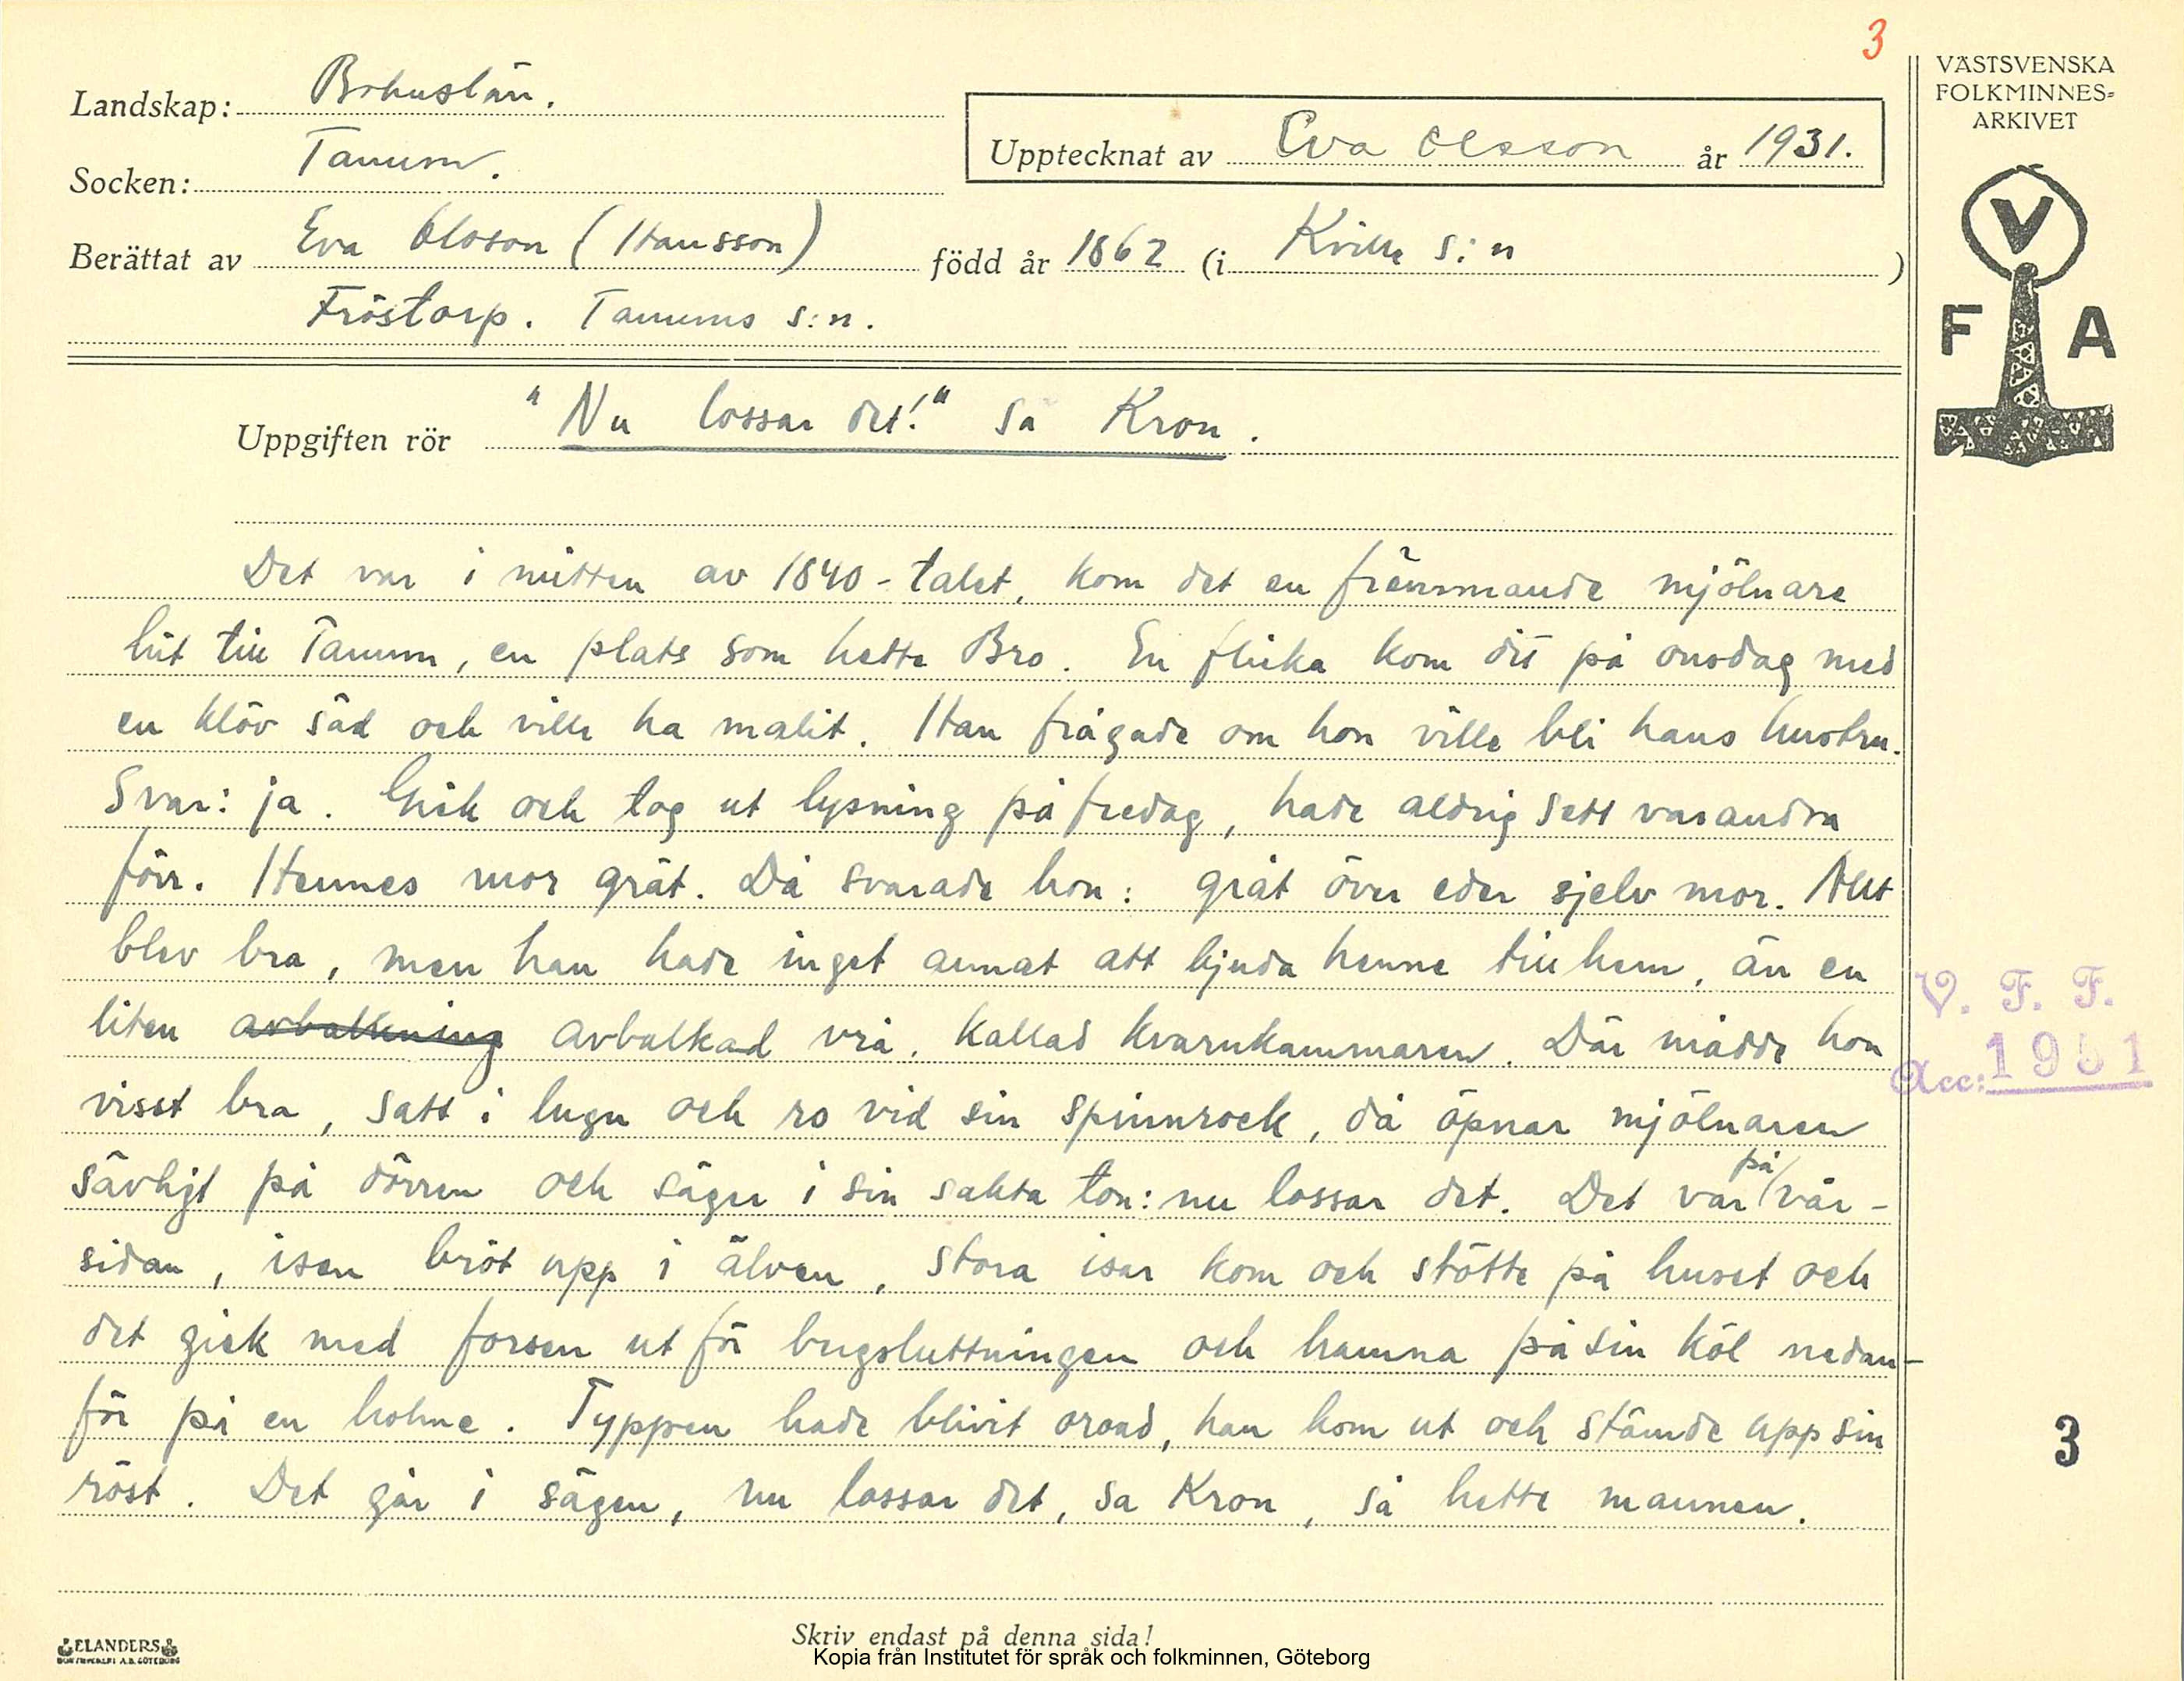 3
Landskap: Bohuslän.
Socken: Tanum.
Upptecknat av Eva Olsson år 1931.
Berättat av Eva Olsson (Hansson) född år 1862 (i Kville s:n )
Fröstorp. Tanums s:n.
VÄSTSVENSKA
FOLKMINNES-
ARKIVET
V
F A
Uppgiften rör "Nu lossar det!" sa Kron.
Det var i mitten av 1840-talet, kom det en främmande mjölnare
hit till Tanum, en plats som hette Bro. En flicka kom dit på onsdag med
en klöv säd och ville ha malit. Han frågade om hon ville bli hans hustru.
Svar: ja. Gick och tog ut lysning på fredag, hade aldrig sett varandra
förr. Hennes mor grät. Då svarade hon: gråt över eder sjelv mor. Allt
blev bra, men han hade inget annat att bjuda henne till hem, än en
liten avbalkning avbalkad vrå, kallad kvarnkammaren. Där mådde hon
visst bra, satt i lugn och ro vid sin spinnrock, då öpnar mjölnaren
sävligt på dörren och säger i sin sakta ton: nu lossar det. Det var på vår-
sidan, isen bröt upp i älven, stora isar kom och stötte på huset och
det gick med forsen utför bergsluttningen och hamna på sin köl nedan-
för på en holme. Typpen hade blivit oroad, han kom ut och stämde upp sin
röst. Det går i sägen, nu lossar det, sa Kron, så hette mannen.
V. F. F.
Acc: 1931
3
ELANDERS
Skriv endast på denna sida!
Kopia från Institutet för språk och folkminnen, Göteborg